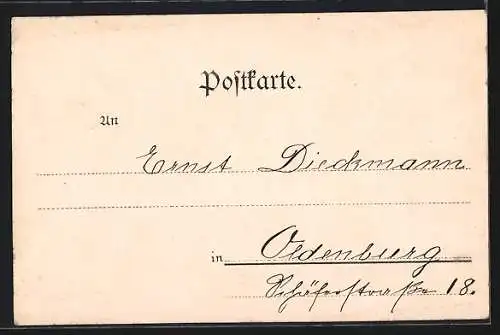 Postkarte.
An
Ernst Dieckmann
in Oldenburg
Schäferstraße 18.